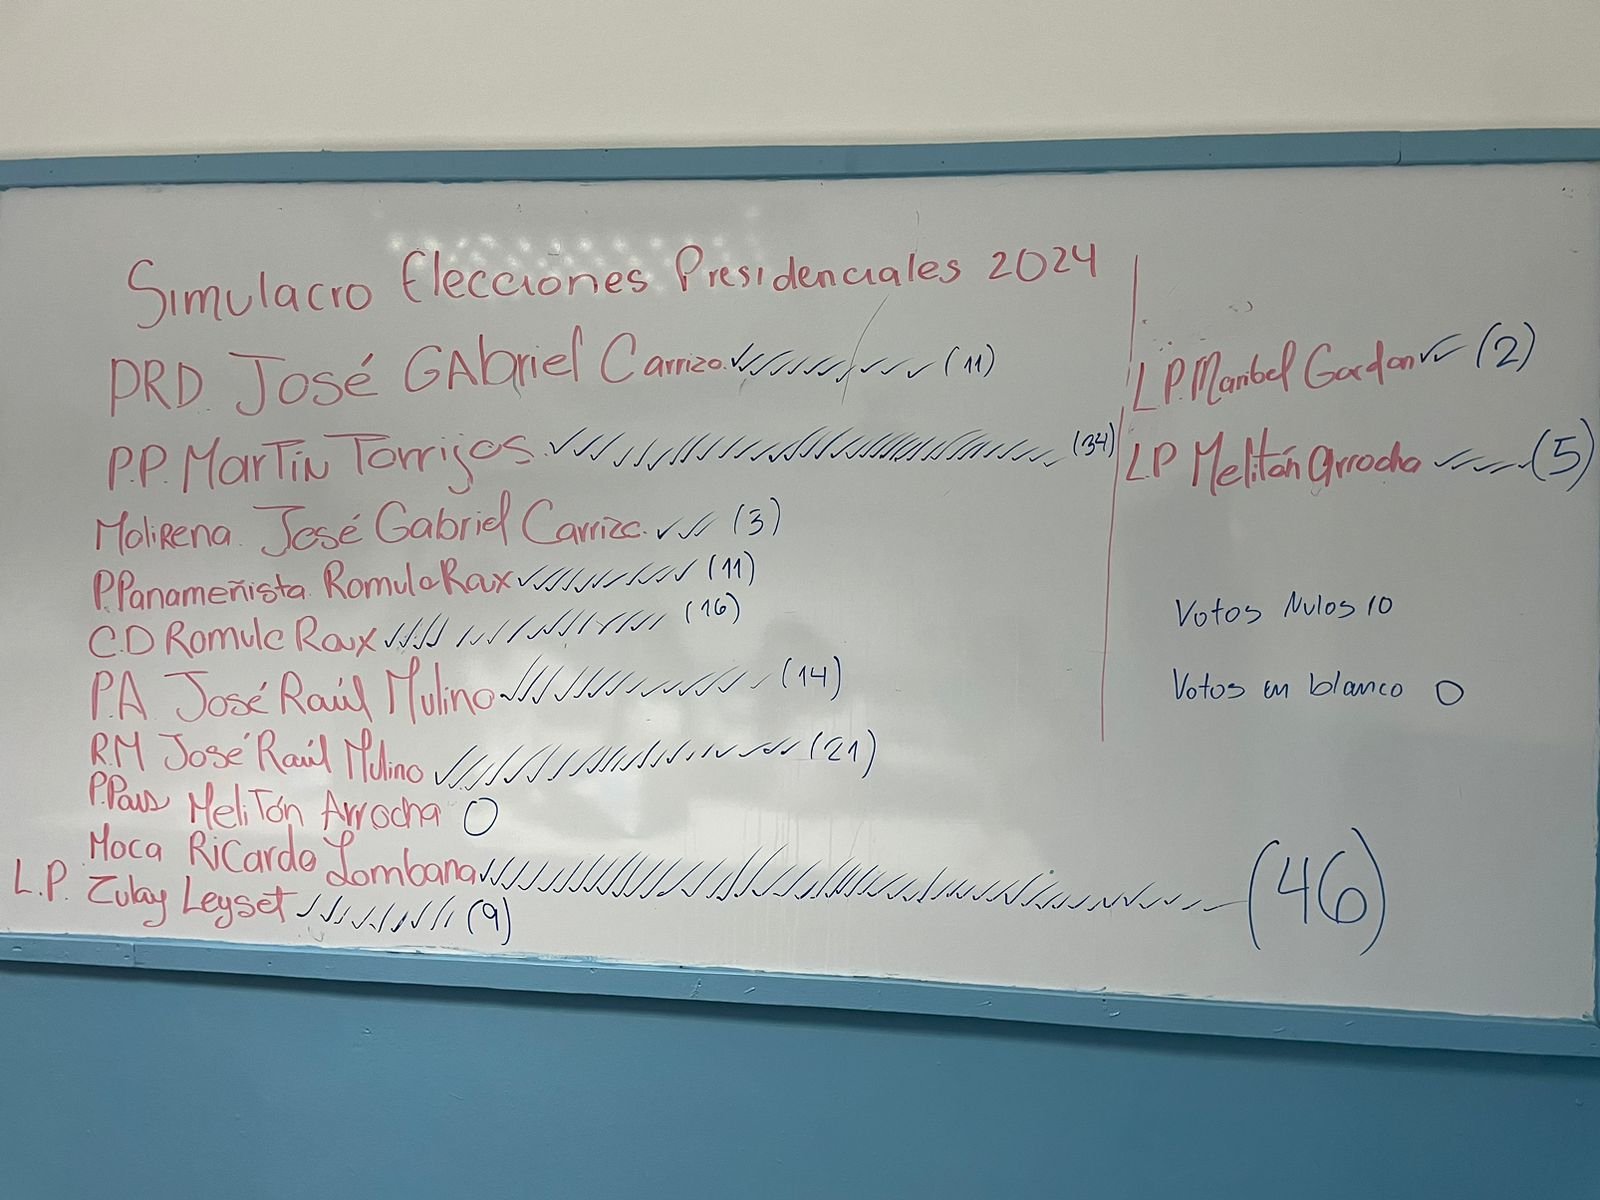 Simulacro Elecciones Presidenciales 2024
PRD. José GAbriel Carrizo. ✓✓✓✓✓✓✓✓✓✓✓ (11)
P.P. MarTín Torrijos. (34)
Molirena. José Gabriel Carrizo. ✓✓✓ (3)
P.Panameñista Romulo Roux (11)
C.D Romulo Roux (16)
P.A José Raúl Mulino (14)
RM José Raúl Mulino (21)
P.País MeliTón Arrocha 0
Moca RiCardo Lombana (46)
L.P. Zulay Leyset (9)
L.P. Maribel Gordon ✓✓ (2)
L.P Melitón Arrocha ✓✓✓✓✓ (5)
Votos Nulos 10
Votos en blanco 0